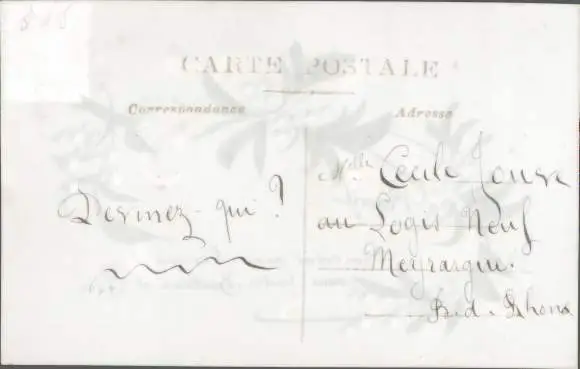 CARTE POSTALE
Correspondance
Adresse
Devinez-qui?
Melle Cecile Jouve
au Logis Neuf
Meyrargues.
B.d. Rhone